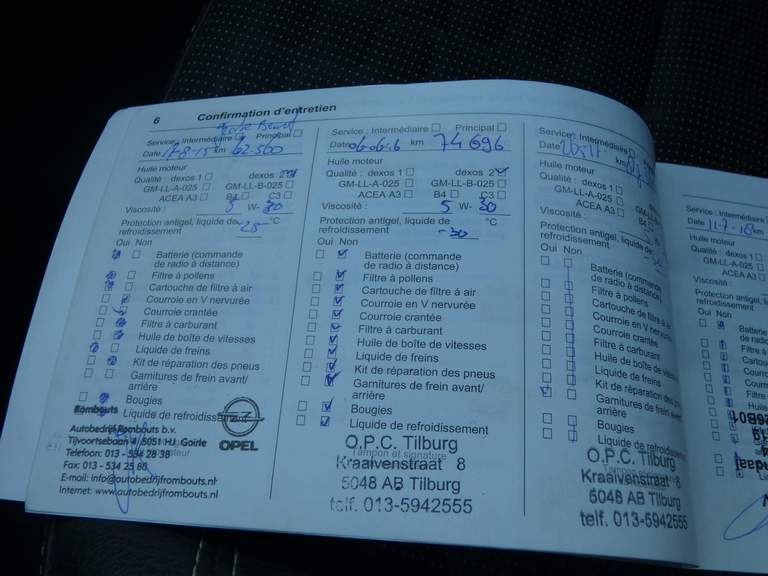 6 Confirmation d'entretien
Service: Intermédiaire Principal
Date 17-8-15 km 62-500
Huile moteur
Qualité: dexos 1 dexos 2
GM-LL-A-025 GM-LL-B-025
ACEA A3 B4 C3
Viscosité: 5 W- 30
Protection antigel, liquide de
refroidissement -25 °C
Oui Non
Batterie (commande
de radio à distance)
Filtre à pollens
Cartouche de filtre à air
Courroie en V nervurée
Courroie crantée
Filtre à carburant
Huile de boîte de vitesses
Liquide de freins
Kit de réparation des pneus
Garnitures de frein avant/
arrière
Bougies
Liquide de refroidissement
Rombouts
Autobedrijf Rombouts b.v.
Tijvoortsebaan 4, 5051 HJ Goirle
Telefoon: 013 - 534 28 38
Fax: 013 - 534 25 80
E-mail: info@autobedrijfrombouts.nl
Internet: www.autobedrijfrombouts.nl
OPEL
Service: Intermédiaire Principal
Date km 74 696
Huile moteur
Qualité: dexos 1 dexos 2
GM-LL-A-025 GM-LL-B-025
ACEA A3 B4 C3
Viscosité: 5 W- 30
Protection antigel, liquide de
refroidissement -30 °C
Oui Non
Batterie (commande
de radio à distance)
Filtre à pollens
Cartouche de filtre à air
Courroie en V nervurée
Courroie crantée
Filtre à carburant
Huile de boîte de vitesses
Liquide de freins
Kit de réparation des pneus
Garnitures de frein avant/
arrière
Bougies
Liquide de refroidissement
Tampon et signature
O.P.C. Tilburg
Kraaivenstraat 8
5048 AB Tilburg
telf. 013-5942555
Service: Intermédiaire
Date km
Huile moteur
Qualité: dexos 1
GM-LL-A-025
ACEA A3
Viscosité:
Protection antigel, liquide de
refroidissement
Oui Non
Batterie (commande
de radio à distance)
Filtre à pollens
Cartouche de filtre à air
Courroie en V nervurée
Courroie crantée
Filtre à carburant
Huile de boîte de vitesses
Liquide de freins
Kit de réparation des
Garnitures de frein
arrière
Bougies
Liquide de refroidi
O.P.C. Tilburg
Kraaivenstraat 8
5048 AB Tilburg
telf. 013-5942555
Service: Intermédiaire
Date 11-7-18 km
Huile moteur
Qualité: dexos 1
GM-LL-A-025
ACEA A3
Viscosité:
Protection antigel,
refroidissement
Oui Non